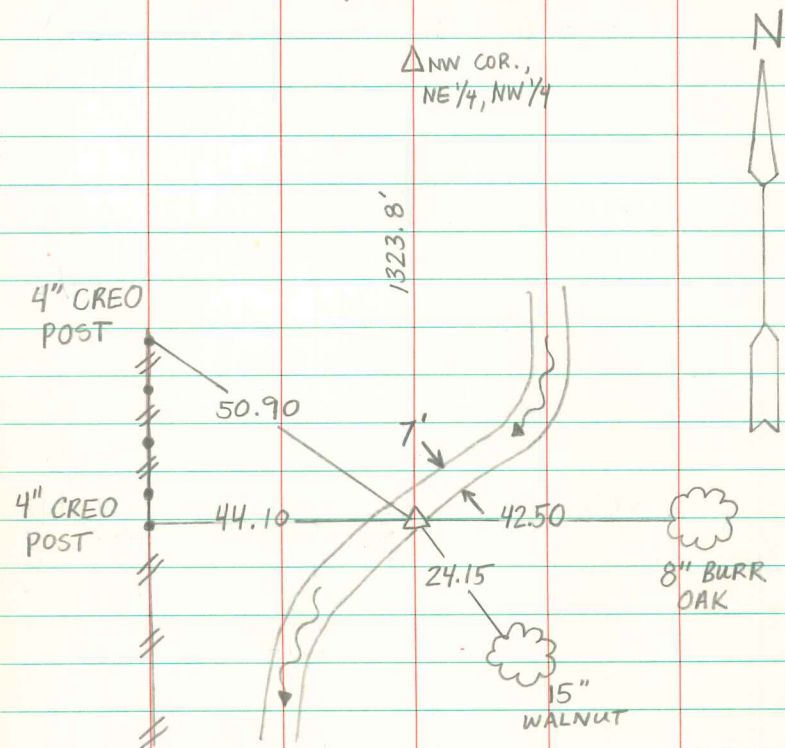 N
NW COR.,
NE 1/4, NW 1/4
1323.8'
4" CREO
POST
50.90
7'
4" CREO
POST
44.10
42.50
24.15
8" BURR
OAK
15"
WALNUT